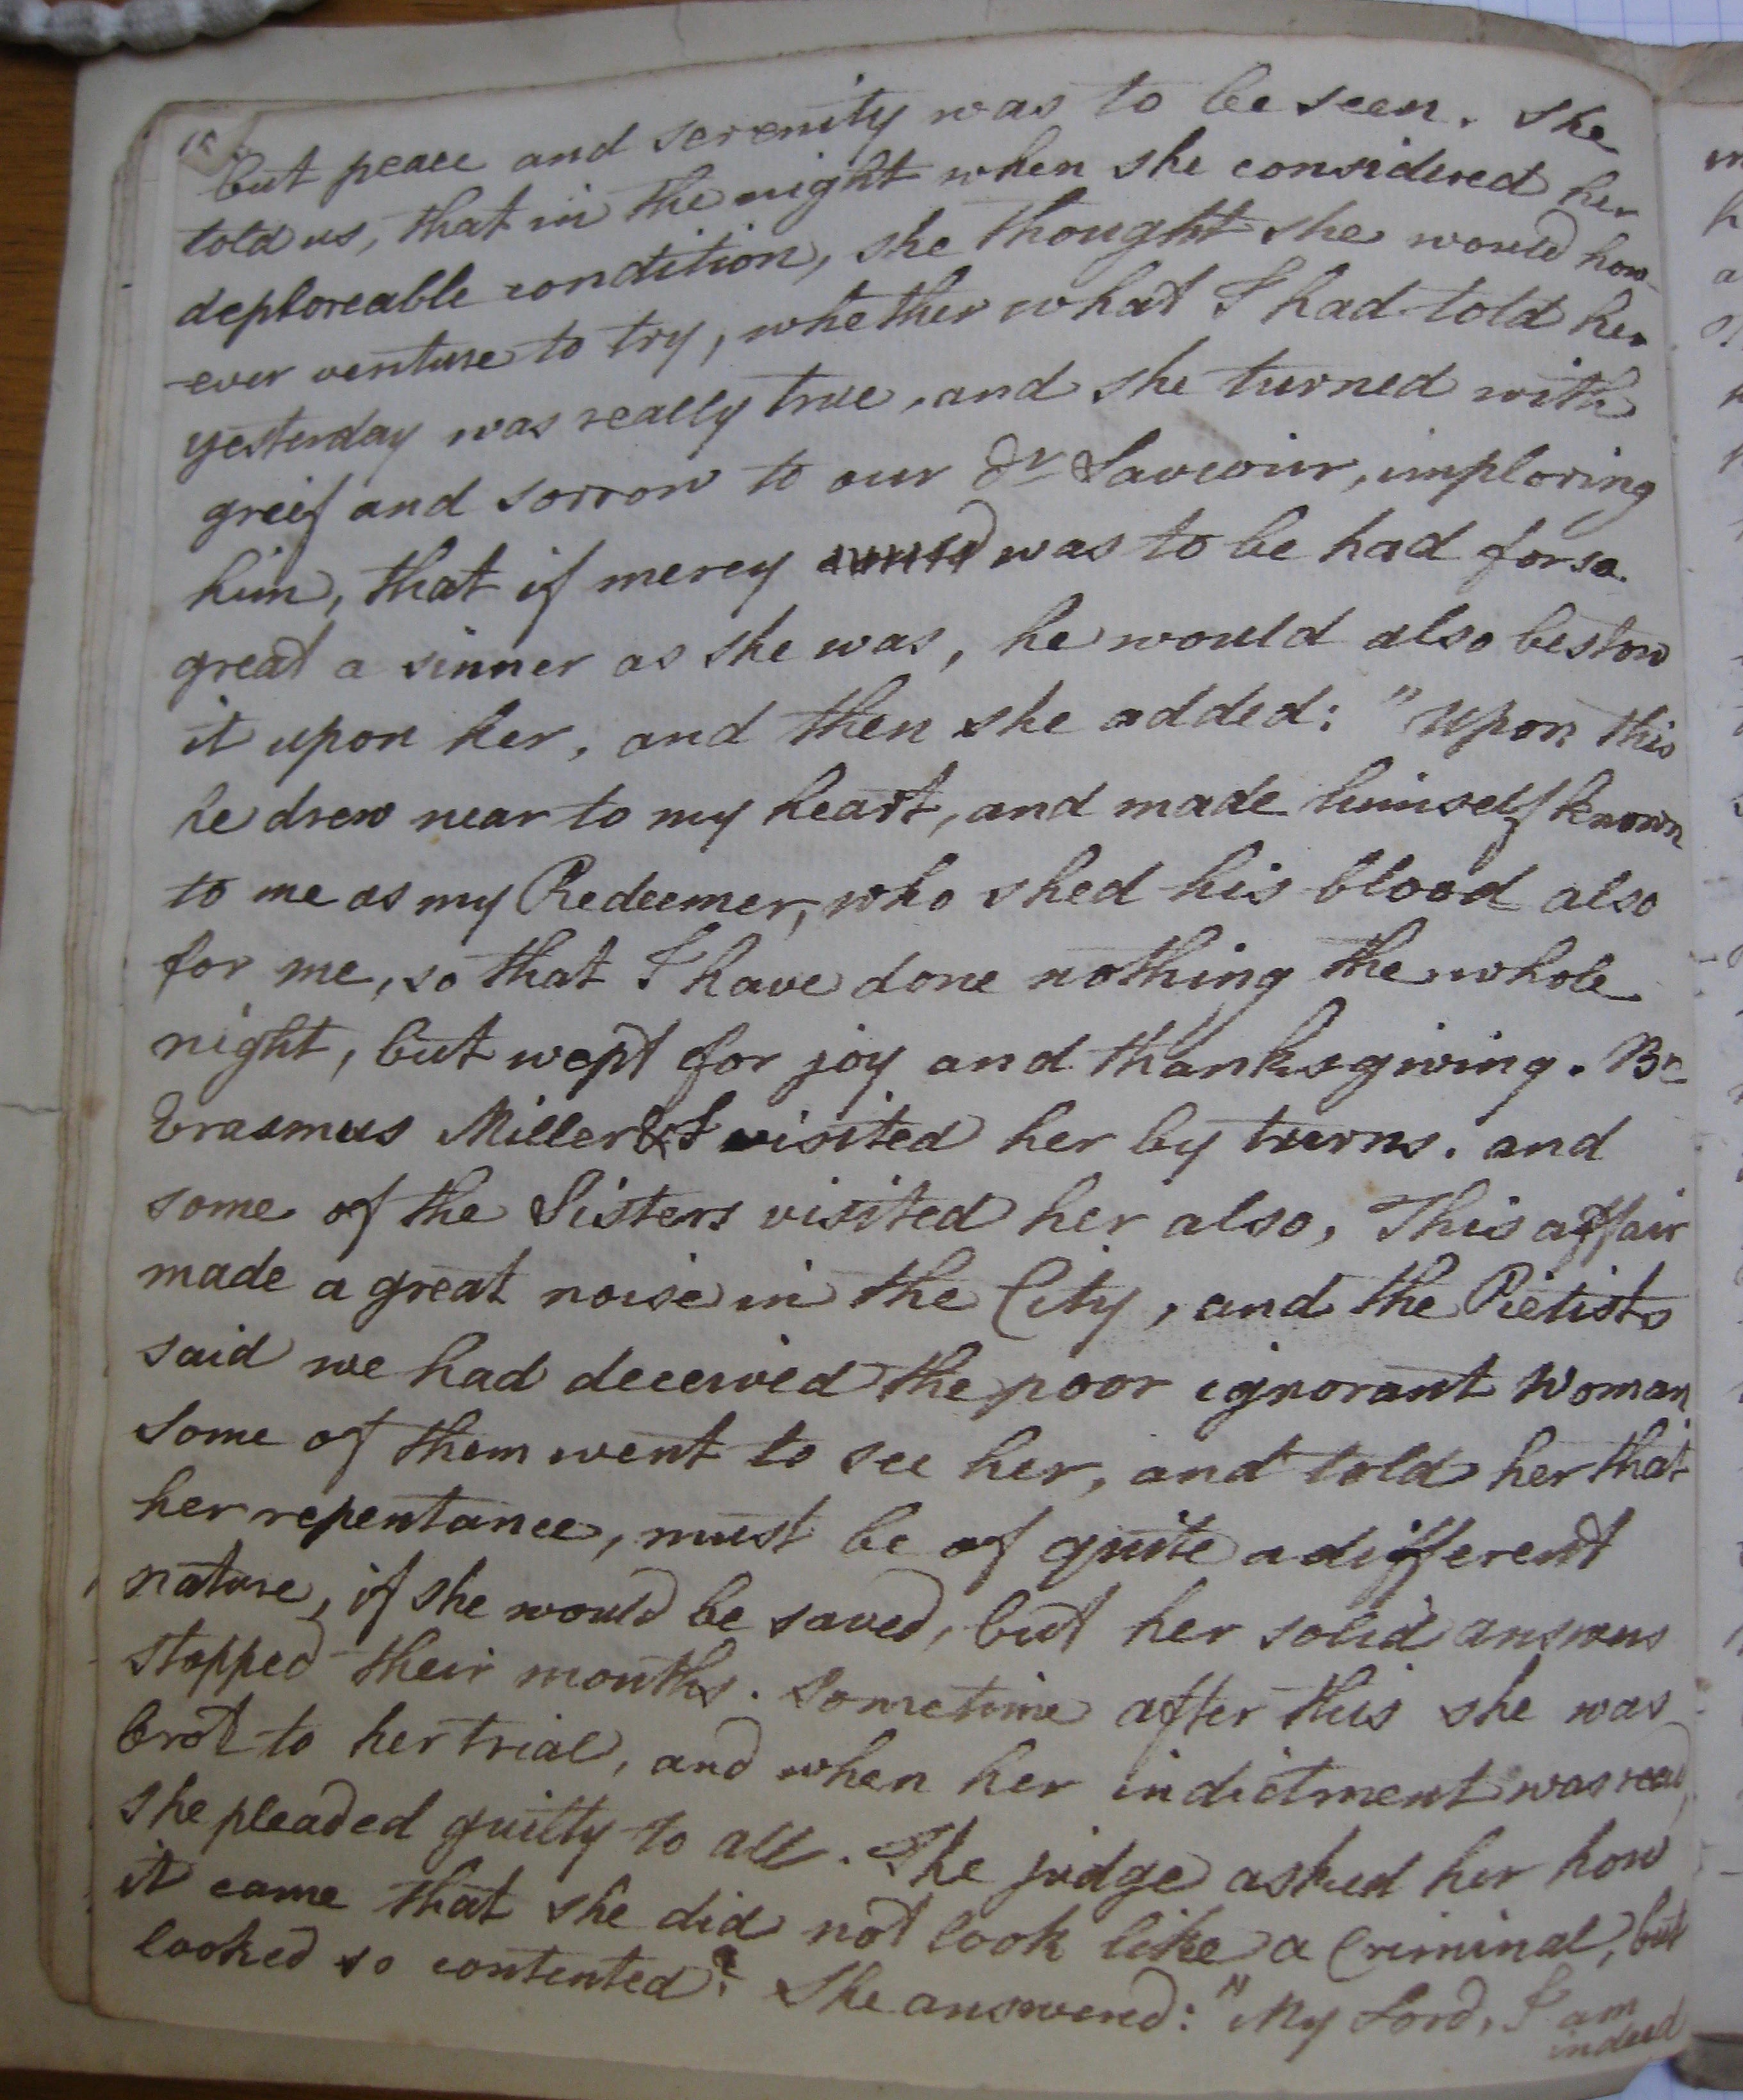 but peace and serenity was to be seen. She
told us, that in the night when she considered her
deploreable condition, she thought she would how-
-ever venture to try, whether what I had told her
yesterday was really true, and she turned with
greif and sorrow to our dr Saviour, imploring
him, that if mercy was to be had for so
great a sinner as she was, he would also bestow
it upon her, and then she added: "Upon this
he drew near to my heart, and made himself known
to me as my Redeemer, who shed his blood also
for me, so that I have done nothing the whole
night, but wept for joy and thanksgiving. Br
Erasmus Miller & I visited her by turns. and
some of the Sisters visited her also, This affair
made a great noise in the City, and the Pietists
said we had deceived the poor ignorant Woman
Some of them went to see her, and told her that
her repentance, must be of quite a different
nature, if she would be saved, but her solid answers
stopped their mouths. Sometime after this she was
brot to her trial, and when her indictment was read
she pleaded guilty to all. The judge asked her how
it came that she did not look like a Criminal, but
looked so contented? She answered: "My Lord, I am
indeed